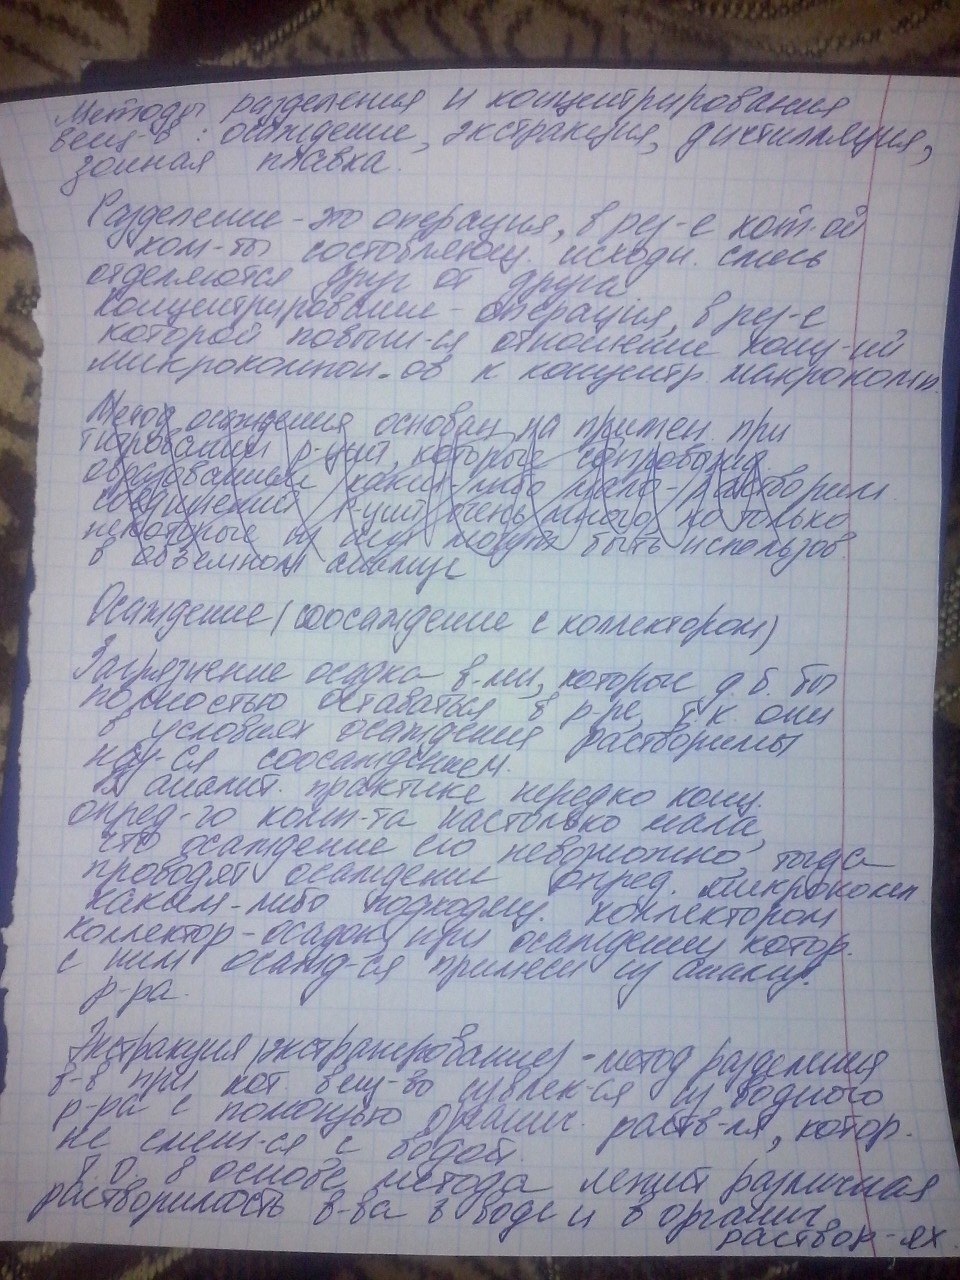 Методы разделения и концентрирования
вещ-в: осаждение, экстракция, дистилляция,
зонная плавка.
Разделение - это операция, в рез-е кот-ой
ком-ты состовляющ. исходн. смесь
отделяются друг от друга
Концентрирование - операция, в рез-е
которой повыш-ся отношение конц-ий
микрокомпон-ов к концентр. макрокомп.
Метод осаждения основан на примен. при
титровании р-ций, которые
образованием каких-либо мало-растворим.
соединений Р-ций очень много, но только
некоторые из них могут быть использов
в объемном анализе
Осаждение (соосаждение с коллектором)
Загрязнение осадка в-ми, которые д.б. бы
полностью оставаться в р-ре, т.к. они
в условиях осаждения растворимы
наз-ся соосаждением.
В аналит. практике нередко конц.
опред-го комп-та настолько мала,
что осаждение его невозможно, тогда
проводят осаждение опред. микрокомп.
каким-либо подходящ. коллектором
Коллектор - осадок, при осаждении котор.
с ним осажд-ся примеси из анализ.
р-ра.
Экстракция (экстрагирование) - метод разделения
в-в при кот. вещ-во извлек-ся из водного
р-ра с помощью органич. раств-ля, котор.
не смеш-ся с водой.
Т.о. в основе метода лежит различная
растворимость в-ва в воде и в органич
раствор-ях